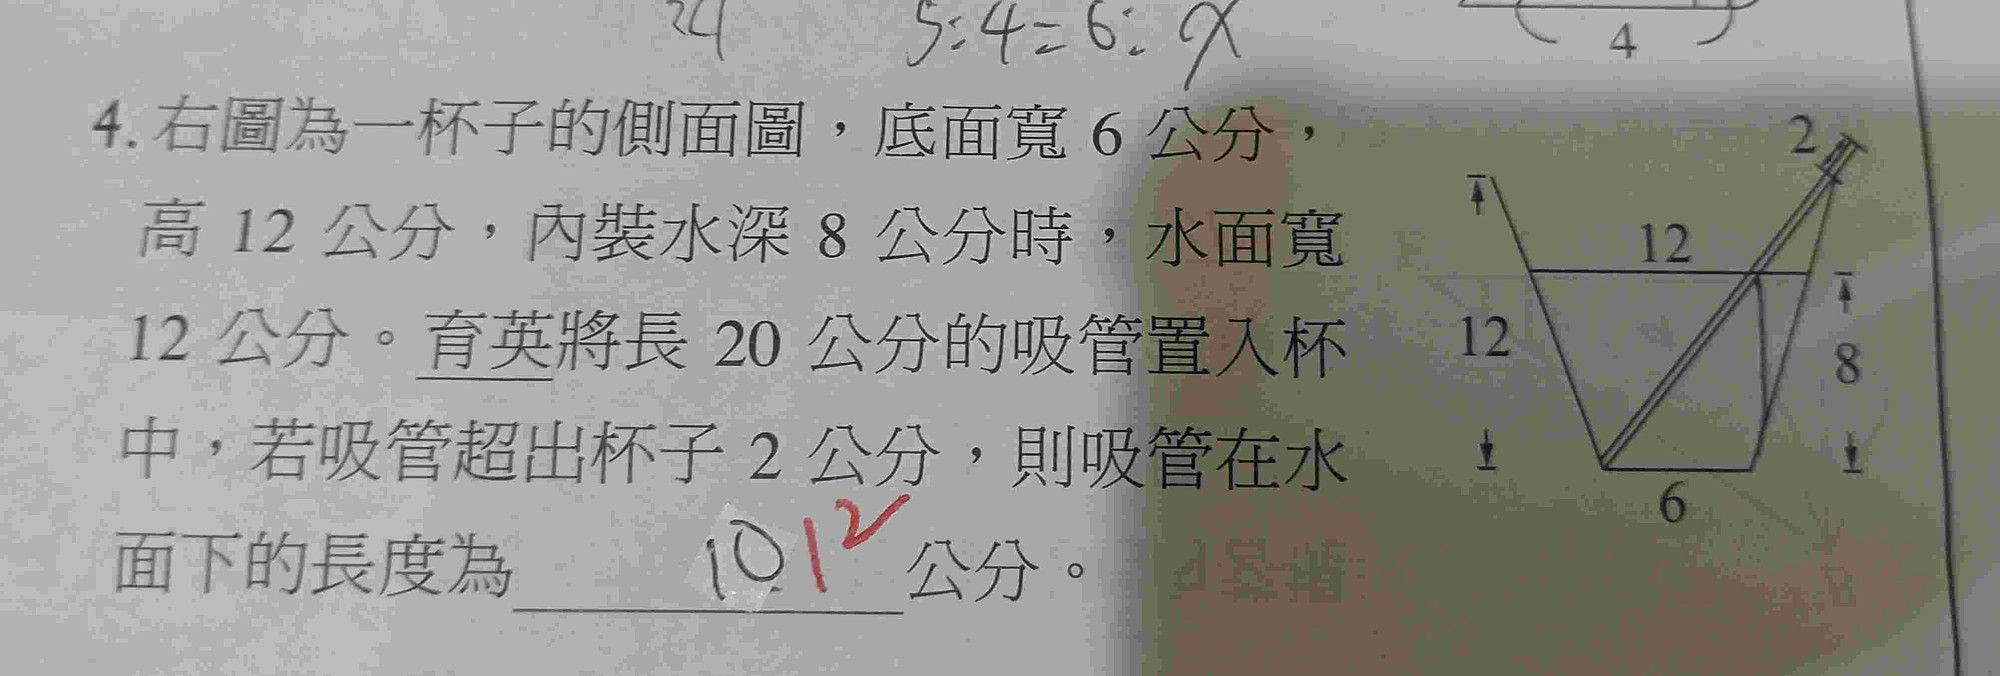 24
5:4=6:x
4
4. 右圖為一杯子的側面圖，底面寬 6 公分，
高 12 公分，內裝水深 8 公分時，水面寬
12 公分。育英將長 20 公分的吸管置入杯
中，若吸管超出杯子 2 公分，則吸管在水
面下的長度為 10 12 公分。
2
12
12
8
6